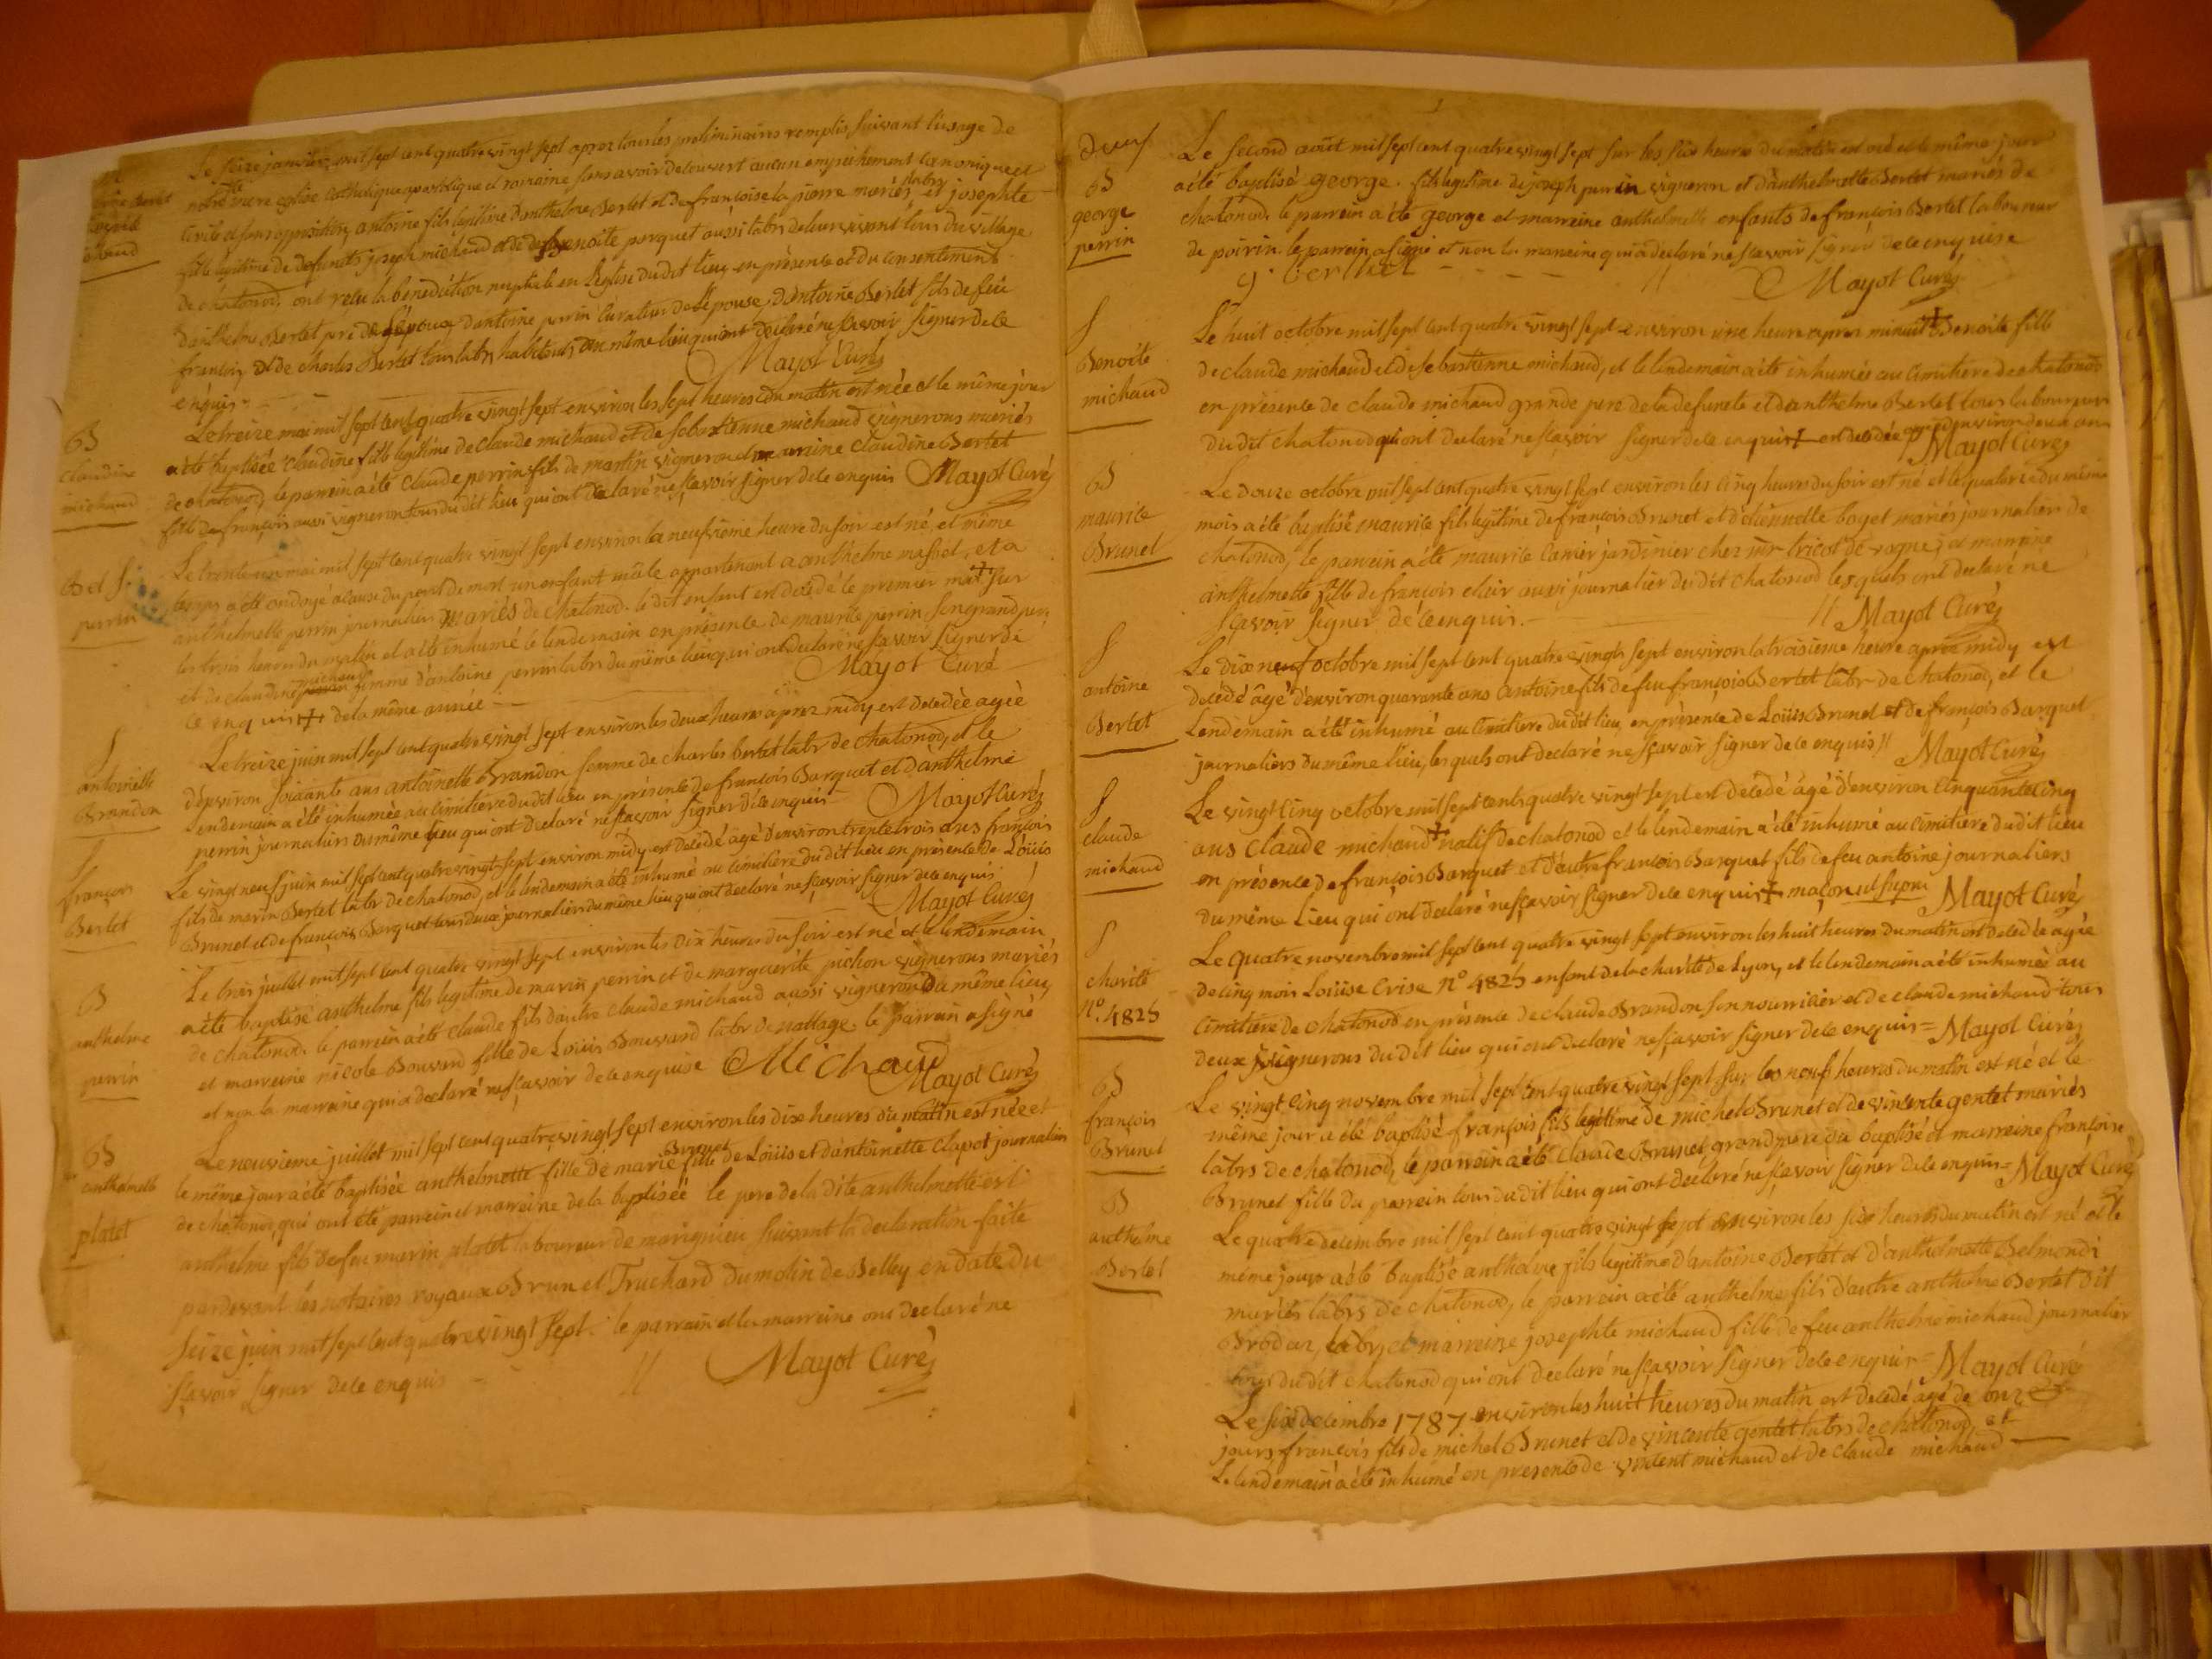 Le seize janvier mil sept cent quatre vingt sept aprez tous les preliminaires remplis suivant l'usage de
notre mere eglise catholique apostolique et romaine sans avoir decouvert aucun empechement canonique et
civile et sans opposition, antoine fils legitime d'anthelme Bertet et de francoise la pierre mariés labrs et josephte
fille legitime de defunts joseph michaud et de benoite parquet aussi labrs de leur vivant tous du village
de chatonod, ont reçu la benediction nuptiale en l'eglise du dit lieu en présence et du consentement
d'anthelme Bertet pere de l'époux, d'antoine perrin curateur de l'épouse, d'antoine Bertet fils de feu
françois et de charles Bertet tous labrs habitants du même lieu qui ont declaré ne sçavoir signer de ce
enquis
Mayot Curé
B
claudine
michaud
Le treize mai mil sept cent quatre vingt sept environ les sept heures du matin est née et le même jour
a été baptisée claudine fille legitime de claude michaud et de sebastienne michaud vignerons mariés
de chatonod, le parrein a été claude perrin fils de martin vigneron et marreine claudine Bertet
fille de françois aussi vigneron tous du dit lieu qui ont declaré ne sçavoir signer de ce enquis Mayot Curé
B et S
perrin
Le trente un mai mil sept cent quatre vingt sept environ la neufvieme heure du soir est né, et même
temps a été ondoyé a cause du peril de mort un enfant mâle appartenant a anthelme massel, et a
anthelmette perrin journaliers mariés de chatonod. le dit enfant est decedé le premier mai + sur
les trois heures du matin et a été inhumé le lendemain en présence de maurice perrin son grand pere
et de claudine michaud femme d'antoine perrin labrs du même lieu qui ont declaré ne savoir signer de
ce enquis + de la même année
Mayot Curé
S
antoinette
Brandon
Le treize juin mil sept cent quatre vingt sept environ les deux heures aprez midy est decedée agée
d'environ soixante ans antoinette Brandon femme de charles bertet labr de chatonod, et le
lendemain a été inhumée au cimitiere du dit lieu en présence de françois Barquet et d'anthelme
perrin journaliers du même lieu qui ont declaré ne sçavoir signer de ce enquis Mayot Curé
S
françois
Bertet
Le vingt neuf juin mil sept cent quatre vingt sept environ midy est decedé agé d'environ trente trois ans françois
fils de marin Bertet labr de chatonod, et le lendemain a été inhumé au cimitiere du dit lieu en présence de Loüis
Brunet et de françois Barquet tous deux journaliers du même lieu qui ont declaré ne sçavoir signer de ce enquis
Mayot Curé
B
anthelme
perrin
Le trois juillet mil sept cent quatre vingt sept environ les dix heures du soir est né et le lendemain
a été baptisé anthelme fils legitime de marin perrin et de marguerite pichon vignerons mariés
de chatonod. le parrein a été claude fils d'autre claude michaud aussi vigneron du même lieu,
et marreine nicole Bouvard fille de Loüis Bouvard labr de nattage. le parrein a signé
et non la marreine qui a declaré ne sçavoir de ce enquise Michaud
Mayot Curé
B
anthelmette
platet
Le neuvieme juillet mil sept cent quatre vingt sept environ les dix heures du matin est née et
le même jour a été baptisée anthelmette fille de marie Brunet fille de Loüis et d'antoinette clapot journaliers
de chatonod, qui ont été parrein et marreine de la baptisée le pere de la dite anthelmette est
anthelme fils de feu marin platet laboureur de marignieu suivant la declaration faite
pardevant les notaires royaux Brun et Truchard dumolin de Belley en date du
seize juin mil sept cent quatre vingt sept. le parrain et la marreine ont declaré ne
sçavoir signer de ce enquis // Mayot Curé
deux
B
george
perrin
Le second août mil sept cent quatre vingt sept sur les six heures du matin est né et le même jour
a été baptisé george fils legitime de joseph perrin vigneron et d'anthelmette Bertet mariés de
chatonod. le parrein a été george et marreine anthelmette enfants de françois Bertet laboureur
de poirin. le parrein a signé et non la marreine qui a declaré ne sçavoir signer de ce enquise
g. berthet // Mayot Curé
S
Benoite
michaud
Le huit octobre mil sept cent quatre vingt sept environ une heure aprez minuit + Benoite fille
de claude michaud et de sebastienne michaud, et le lendemain a été inhumée au cimitiere de chatonod
en présence de claude michaud grand pere de la defuncte et d'anthelme Bertet tous laboureurs
du dit chatonod qui ont declaré ne sçavoir signer de ce enquis + est decedée agée d'environ deux ans
Mayot Curé
B
maurice
Brunet
Le douze octobre mil sept cent quatre vingt sept environ les cinq heures du soir est né et le quatorze du même
mois a été baptisé maurice fils legitime de françois Brunet et d'etiennette boyet mariés journaliers de
chatonod, le parrein a été maurice carrier jardinier chez mr tricot de rogne; et marreine
anthelmette fille de françois clair aussi journalier du dit chatonod lesquels ont declaré ne
sçavoir signer de ce enquis. // Mayot Curé
S
antoine
Bertet
Le dix neuf octobre mil sept cent quatre vingt sept environ la troisieme heure aprez midy est
decedé âgé d'environ quarante ans antoine fils de feu françois Bertet labr de chatonod, et le
lendemain a été inhumé au cimitiere du dit lieu en présence de Loüis Brunet et de françois Barquet
journaliers du même lieu, lesquels ont declaré ne sçavoir signer de ce enquis // Mayot Curé
S
claude
michaud
Le vingt cinq octobre mil sept cent quatre vingt sept est decedé âgé d'environ cinquante cinq
ans claude michaud + natif de chatonod et le lendemain a été inhumé au cimitiere du dit lieu
en présence de françois Barquet et d'autre françois Barquet fils de feu antoine journaliers
du même lieu qui ont declaré ne sçavoir signer de ce enquis + maçon ut supra Mayot Curé
S
charité
N° 4825
Le quatre novembre mil sept cent quatre vingt sept environ les huit heures du matin est decedée agée
de cinq mois Loüise Crise N° 4825 enfant de la charité de Lyon, et le lendemain a été inhumée au
cimitiere de chatonod en présence de claude Brandon son nourricier et de claude michaud tous
deux vignerons du dit lieu qui ont declaré ne sçavoir signer de ce enquis = Mayot Curé
B
françois
Brunet
Le vingt cinq novembre mil sept cent quatre vingt sept sur les neuf heures du matin est né et le
même jour a été baptisé françois fils legitime de michel Brunet et de vincente gentet mariés
labrs de chatonod, le parrein a été claude Brunet grand pere du baptisé et marreine françoise
Brunet fille du parrein tous du dit lieu qui ont declaré ne sçavoir signer de ce enquis = Mayot Curé
B
anthelme
Bertet
Le quatre decembre mil sept cent quatre vingt sept environ les six heures du matin est né et le
même jour a été baptisé anthelme fils legitime d'antoine Bertet et d'anthelmette Belmondi
mariés labrs de chatonod, le parrein a été anthelme fils d'autre anthelme Bertet dit
labr, et marreine josephte michaud fille de feu anthelme michaud journalier
tous du dit chatonod qui ont declaré ne sçavoir signer de ce enquis = Mayot Curé
Le six decembre 1787 environ les huit heures du matin est decedé agé de onze
jours françois fils de michel Brunet et de vincente gentet labrs de chatonod, et
le lendemain a été inhumé en presence de vincent michaud et de claude michaud